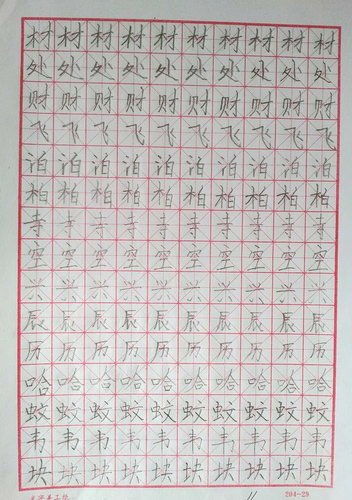 材材材材材材材材材材
处处处处处处处处处处
财财财财财财财财财财
飞飞飞飞飞飞飞飞飞飞
泊泊泊泊泊泊泊泊泊泊
柏柏柏柏柏柏柏柏柏柏
寺寺寺寺寺寺寺寺寺寺
空空空空空空空空空空
兴兴兴兴兴兴兴兴兴兴
辰辰辰辰辰辰辰辰辰辰
历历历历历历历历历历
哈哈哈哈哈哈哈哈哈哈
蚊蚊蚊蚊蚊蚊蚊蚊蚊蚊
韦韦韦韦韦韦韦韦韦韦
块块块块块块块块块块
11 204-29